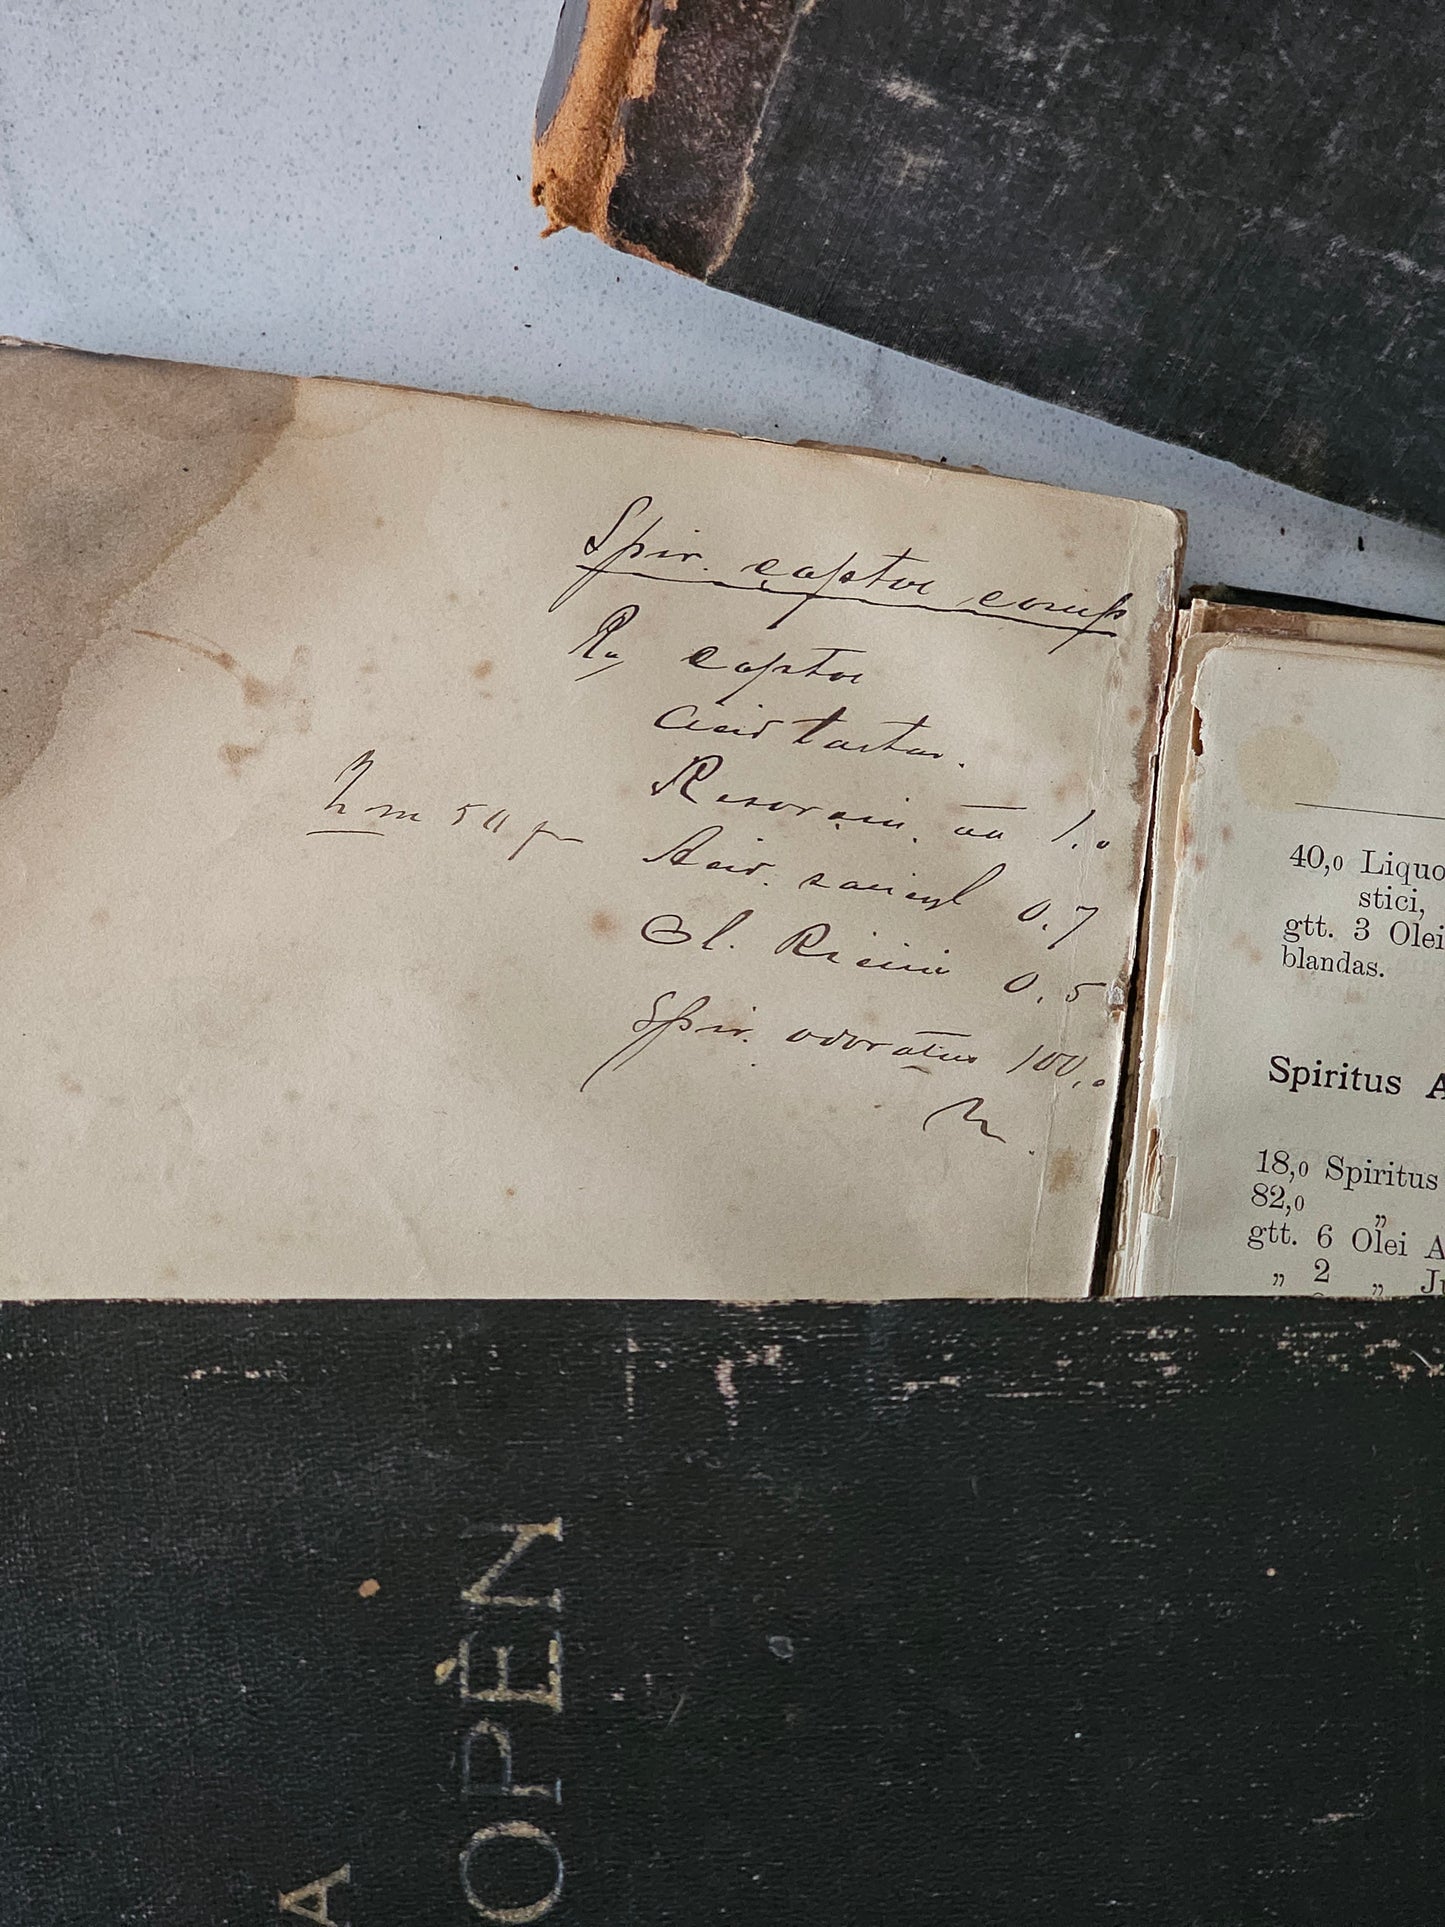 Spir. captoe comp
Rp, captoe
Acid tartar.
Resorcin. aa 1.0
Acid. salicyl 0.7
Ol. Ricini 0.5
Spir. odoratus 100.0
M.
m 50
40,0 Liquo
stici,
gtt. 3 Olei
blandas.
Spiritus A
18,0 Spiritus
82,0 „
gtt. 6 Olei A
„ 2 „ Ju
OPÈN
A